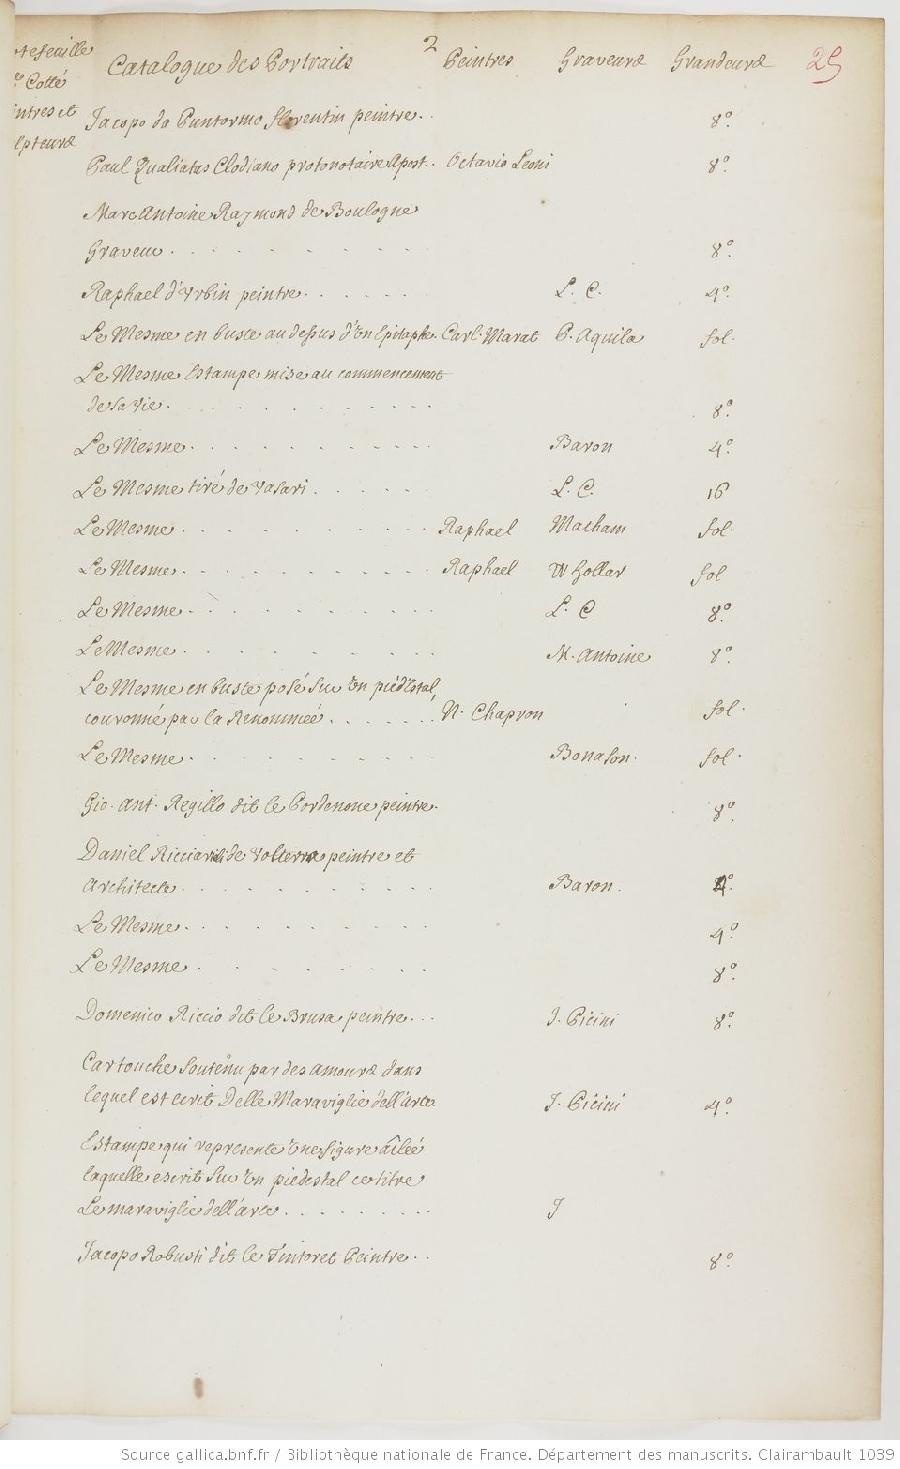 2
25
Catalogue des Portraits Peintres Graveurs Grandeurs
Cotté
Jacopo da Puntormo florentin peintre. . 8°.
Paul Qualiatus Clodiano protonotaire Apost. Octavio Leoni 8°.
Marc Antoine Raymond de Boulogne
Graveur . 8°.
Raphael d'Urbin peintre. L. C. 4°.
Le Mesme en buste au dessus d'un Epitaphe. Carl. Marat P. Aquila fol.
Le Mesme Estampe mise au commencement
de sa vie. 8°.
Le Mesme. Baron 4°.
Le Mesme tiré de Vasari. L. C. 16
Le Mesme Raphael Matham fol
Le Mesme. Raphael W Hollar fol
Le Mesme. L. C 8°.
Le Mesme. M. Antoine 8°.
Le Mesme en buste posé sur un piédestal,
couronné par la Renommée. N. Chapron fol.
Le Mesme. Bonason. fol.
Gio. Ant. Regillo dit le Pordenone peintre. 8°.
Daniel Ricciarelli de Volterre peintre et
Architecte. Baron. 4°.
Le Mesme. 4°.
Le Mesme. 8°.
Domenico Riccio dit le Brusa peintre. . . J. Picini 8°.
Cartouche soutenu par des amours dans
lequel est ecrit Delle Maraviglie dell'arte J. Picini 4°.
Estampe qui represente une figure aîleé
laquelle escrit sur un piédestal ce titre
Le maraviglie dell'arte. J
Jacopo Robusti dit le Tintoret Peintre. . 8°.
Source gallica.bnf.fr / Bibliothèque nationale de France. Département des manuscrits. Clairambault 1039